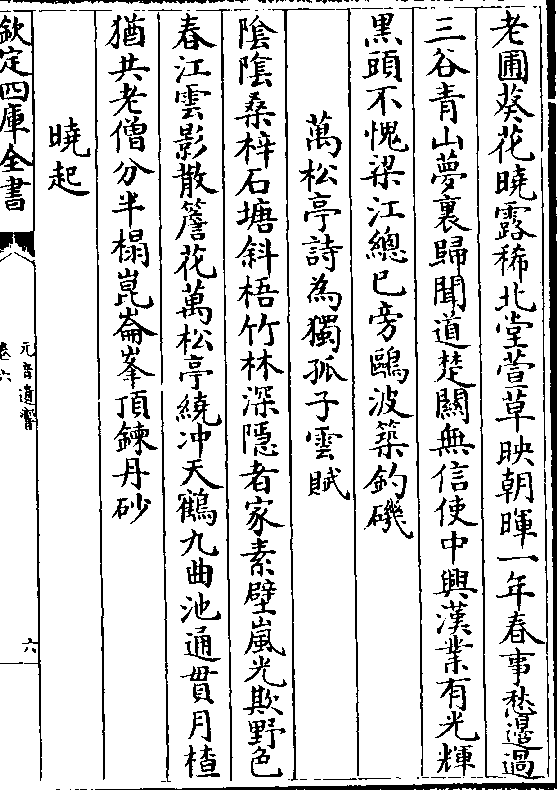 老圃葵花曉露稀北堂萱草映朝暉一年春事愁邊過
三谷青山夢裏歸聞道楚關無信使中興漢業有光輝
黒頭不愧梁江總已旁鷗波築釣磯
萬松亭詩為獨孤子雲賦
陰陰桑梓石塘斜梧竹林深隱者家素壁嵐光欺野色
春江雲影散簷花萬松亭繞冲天鶴九曲池通貫月槎
猶共老僧分半榻崑崙峯頂鍊丹砂
曉起
欽定四庫全書
元音遺響
卷六
六